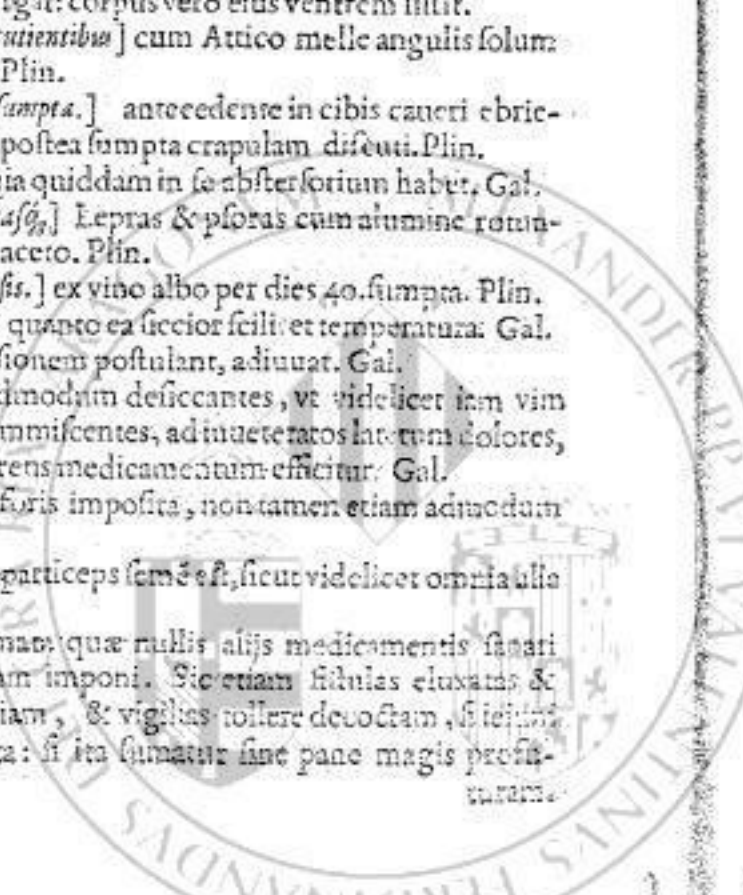 corpus vero eius ventrem sistit.
utientibus] cum Attico melle angulis solum
Plin.
sumpta.] antecedente in cibis caueri ebrie-
postea sumpta crapulam discuti. Plin.
quiddam in se abstersorium habet. Gal.
Lepras & psoras cum alumine rotun-
aceto. Plin.
ex vino albo per dies 40. sumpta. Plin.
quanto ea siccior scilicet temperatura. Gal.
sionem postulant, adiuuat. Gal.
dmodum desiccantes, vt videlicet iam vim
mmiscentes, ad inueteratos laterum dolores,
rens medicamentum efficitur. Gal.
foris imposita, non tamen etiam admodum
particeps semē est, sicut videlicet omnia alia
quæ nullis alijs medicamentis sanati
am imponi. Sic etiam fistulas eluxatas &
iam, & vigilias tollere decoctam, si ieiuni
ta: si ita sumatur sine pane magis profu-
turam.
ALEXANDER PP VI VALENTINVS